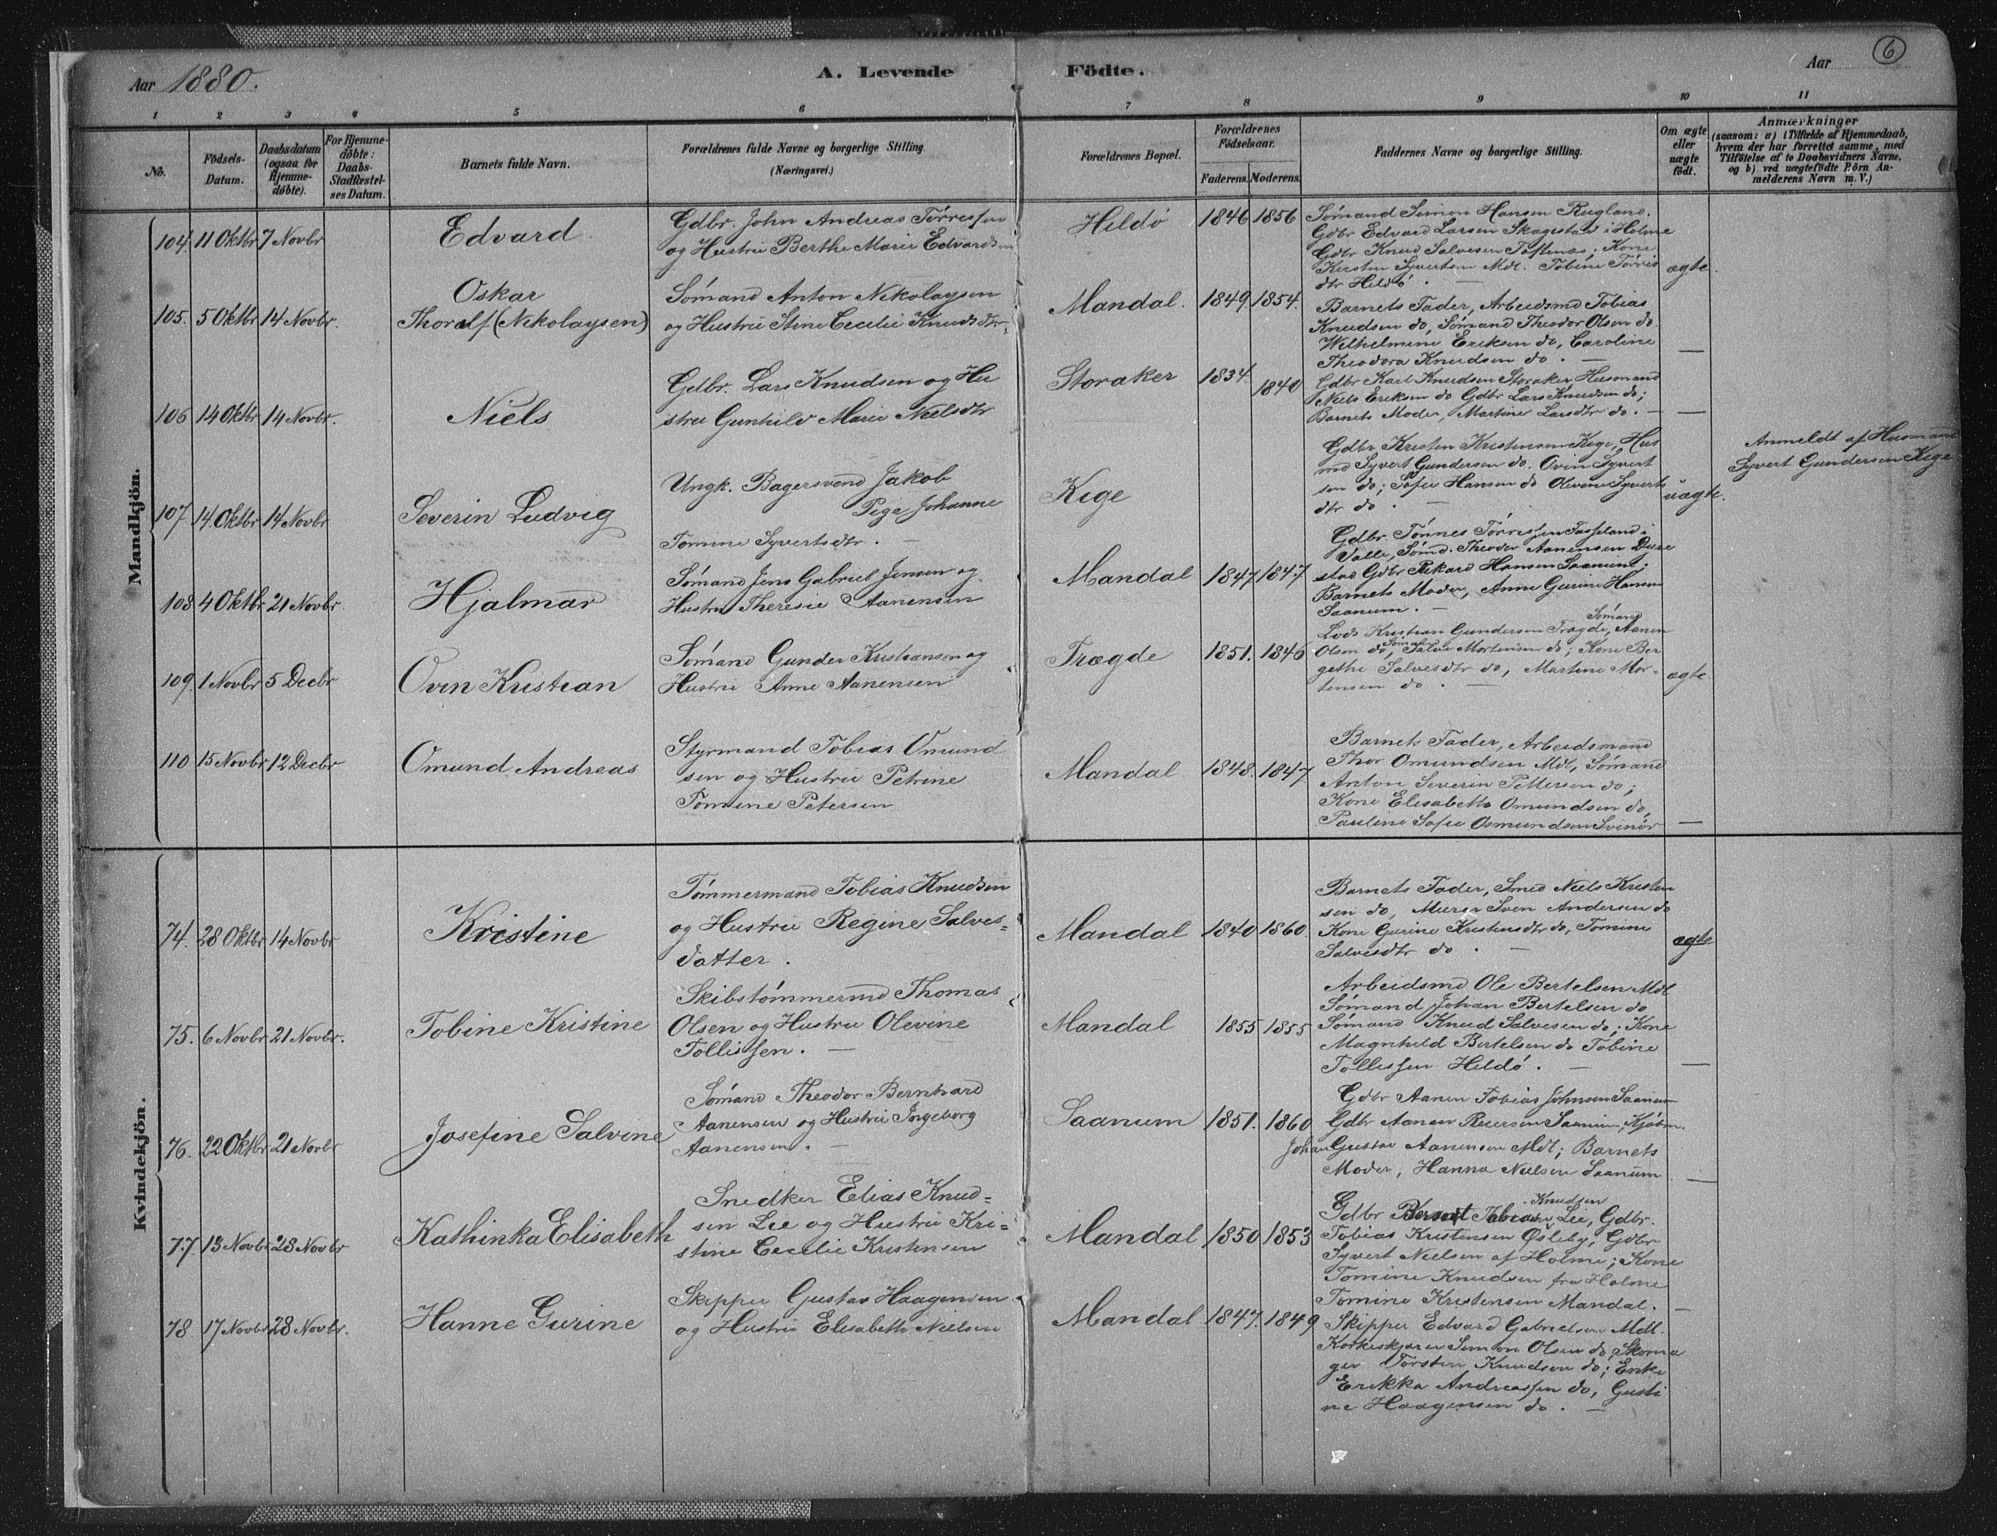 Aar 1880.
A. Levende Födte.
Aar
6
1 2 3 4 5 6 7 8 9 10 11
No.
Födsels-
Datum.
Daabsdatum
(ogsaa for
Hjemme-
døbte).
For Hjemme-
døbte:
Daabs-
Stadfæstel-
ses Datum.
Barnets fulde Navn.
Forældrenes fulde Navne og borgerlige Stilling.
(Næringsvei.)
Forældrenes Bopæl.
Forældrenes
Fødselsaar.
Faderens. Moderens.
Faddernes Navne og borgerlige Stilling.
Om ægte
eller
uægte
födt.
Anmærkninger
(saasom: a) i Tilfælde af Hjemmedaab,
hvem der har forrettet samme, med
Tilföielse af to Daabsvidners Navne,
og b) ved uægtefödte Børn An-
melderens Navn m. V.)
Mandkjön.
104. 11 Oktbr 7 Novbr
Edvard.
Gdbr. John Andreas Tørressen
og Hustru Berthe Marie Edvardsen
Hildö 1846 1856
Sömand Simon Hansen Rugland.
Gdbr Edvard Larsen Skagestad i Holme
Gdbr Knud Salvesen Toftenæs. Kone
Kersten Syvertsen Mdl. Tobine Törris
dtr Hildö. —
ægte.
105. 5 Oktbr 14 Novbr.
Oskar
Thoralf (Nikolaysen)
Sömand Anton Nikolaysen
og Hustru Stine Cecilie Knudsdtr.
Mandal. 1849. 1854.
Barnets Fader, Arbeidsmd Tobias
Knudsen do, Sömand Theodor Olsen do.
Wilhelmine Eriksen do, Caroline
Theodora Knudsen do. —
—
106 14 Oktbr 14 Novbr.
Niels
Gdbr. Lars Knudsen og Hu
stru Gunhild Marie Nielsdtr
Storaker 1834. 1840
Gdbr Karl Knudsen Storaker Husmand
Niels Eriksen do Gdbr Lars Knudsen do;
Barnets Moder, Martine Larsdtr do. —
—
107 14. Oktbr 14 Novbr
Severin Ludvig
Ungk. Bagersvend Jakob
Pige Johanne
Tomine Syvertsdtr. —
Kige
Gdbr Kristen Kristensen Kige, Hus
md Syvert Gundersen do. Ovin Syvert
sen do; Sofie Hansen do Olevine Syverts
dtr do. —
uægte.
Anmeldt af Husmand
Syvert Gundersen Kige.
108. 4 Oktbr 21 Novbr
Hjalmar
Sömand Jens Gabriel Jensen og
Hustru Theresie Aanensen
Mandal 1847 1847
Gdbr. Tönnes Törresen Fasseland i
Valle, Sömd. Theodor Aanensen Dyre
stad Gdbr Rikard Hansen Saanum;
Barnets Moder, Anne Gurine Hansen
Saanum. —
109. 1 Novbr 5 Decbr
Ovin Kristian
Sömand Gunder Kristiansen og
Hustru Anne Aanensen
Trægde 1851. 1846
Lods Kristian Gundersen Trægde, Sömand Aanen
Olsen do, Sömand Salve Mortensen do; Kone Ber
gethe Salvesdtr do, Martine Mor-
tensen do. —
ægte.
110 15 Novbr 12 Decbr
Omund Andreas
Styrmand Tobias Omund
sen og Hustru Petrine
Tomine Petersen
Mandal 1848. 1847.
Barnets Fader, Arbeidsmand
Thor Omundsen Mdl, Sömand
Anton Severin Pettersen do;
Kone Elisabeth Omundsen do,
Pauline Sofie Osmundsen Svinör
—
Kvindekjön.
74. 28 Oktbr 14 Novbr
Kristine
Tömmermand Tobias Knudsen
og Hustru Regine Salves-
datter.
Mandal 1840 1860.
Barnets Fader, Smed Niels Kristen
sen do, Murer Sven Andersen do
Kone Gurine Kristensdtr do, Tomine
Salvesdtr do. —
ægte
75. 6 Novbr 21 Novbr.
Tobine Kristine
Skibstömmermd Thomas
Olsen og Hustru Olevine
Tollissen. —
Mandal 1855 1855
Arbeidsmd Ole Bertelsen Mdl
Sömand Johan Bertelsen do
Sömand Knud Salvesen do; Kone
Magnhild Bertelsen do Tobine
Tollissen Hildö. —
—
76. 22 Oktbr 21 Novbr
Josefine Salvine
Sömand Theodor Bernhard
Aanensen og Hustru Ingeborg
Aanensen. —
Saanum 1851. 1860
Gdbr Aanen Tobias Johnsen Saanum
Gdbr Aanen Reiersen Saanum, Kjöbm.
Johan Gustav Aanensen Mdl; Barnets
Moder, Hanna Nielsen Saanum.
—
77 13 Novbr 28 Novbr
Kathinka Elisabeth
Snedker Elias Knud-
sen Lie og Hustru Kri-
stine Cecilie Kristensen
Mandal 1850 1853
Gdbr Tobias Knudsen Lie, Gdbr.
Tobias Kristensen Øsleby, Gdbr
Syvert Nielsen af Holme; Kone
Tomine Knudsen fra Holme
Tomine Kristensen Mandal.
—
78 17 Novbr 28 Novbr.
Hanne Gurine
Skipper Gustav Haagensen
og Hustru Elisabeth Nielsen
Mandal 1847. 1849
Skipper Edvard Gabrielsen Mdl.
Korkeskjærer Simon Olsen do, Skoma
ger Torsten Knudsen do; Enke
Erikka Andreassen do, Gusti
ne Haagensen do. —
—